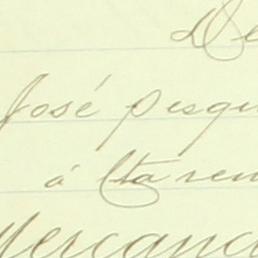 De
José pesqu
á lta ren
Mercanc